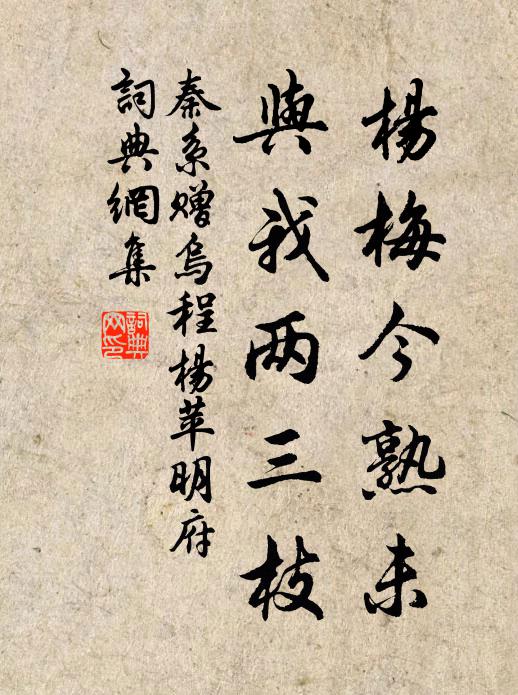 楊梅今熟未
與我两三枝
秦系赠烏程楊苹明府
詞典網集
詞典网印